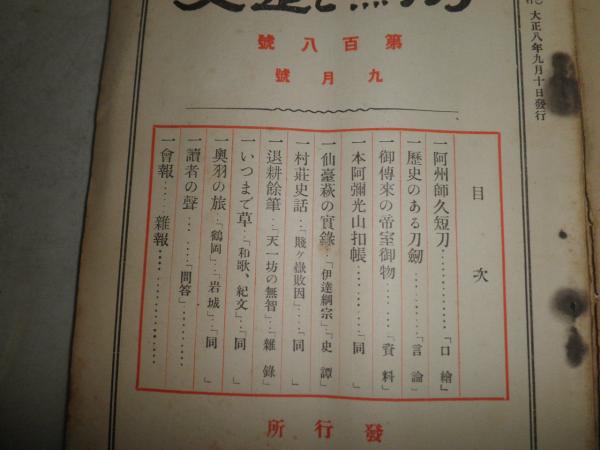 大正八年九月十日發行
第百八號
九月號
目次
一阿州師久短刀…………「口繪」
一歷史のある刀劒…………「言論」
一御傳來の帝室御物…………「資料」
一本阿彌光山扣帳…………「同」
一仙臺萩の實錄…「伊達綱宗」「史譚」
一村莊史話…「賤ヶ嶽敗因」…「同」
一退耕餘筆…「天一坊の無智」…「雜錄」
一いつまで草…「和歌、紀文」…「同」
一奧羽の旅…「鶴岡」…「岩城」…「同」
一讀者の聲………「問答」…………
一會報……雜報…………
發行所